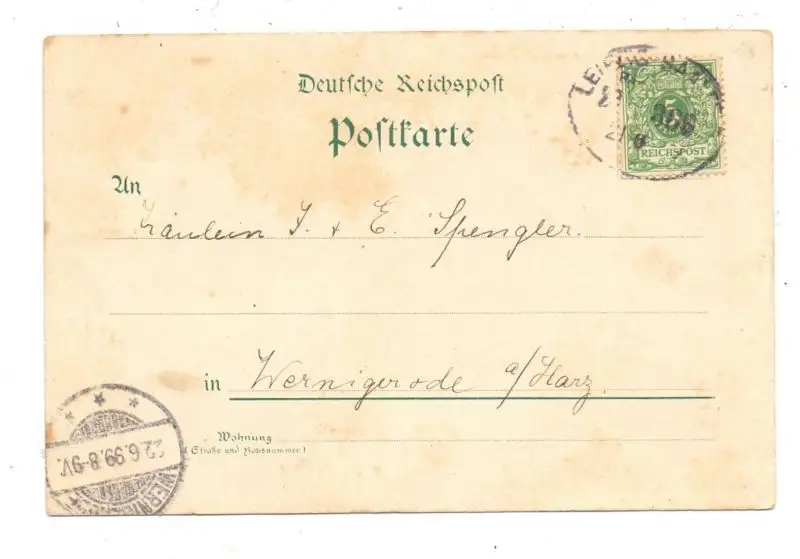 Deutsche Reichspost
Postkarte
5
REICHSPOST
An
Fräulein J. & E. Spengler.
in Wernigerode a/Harz.
Wohnung
(Straße und Hausnummer)
22.6.99.8-9V.